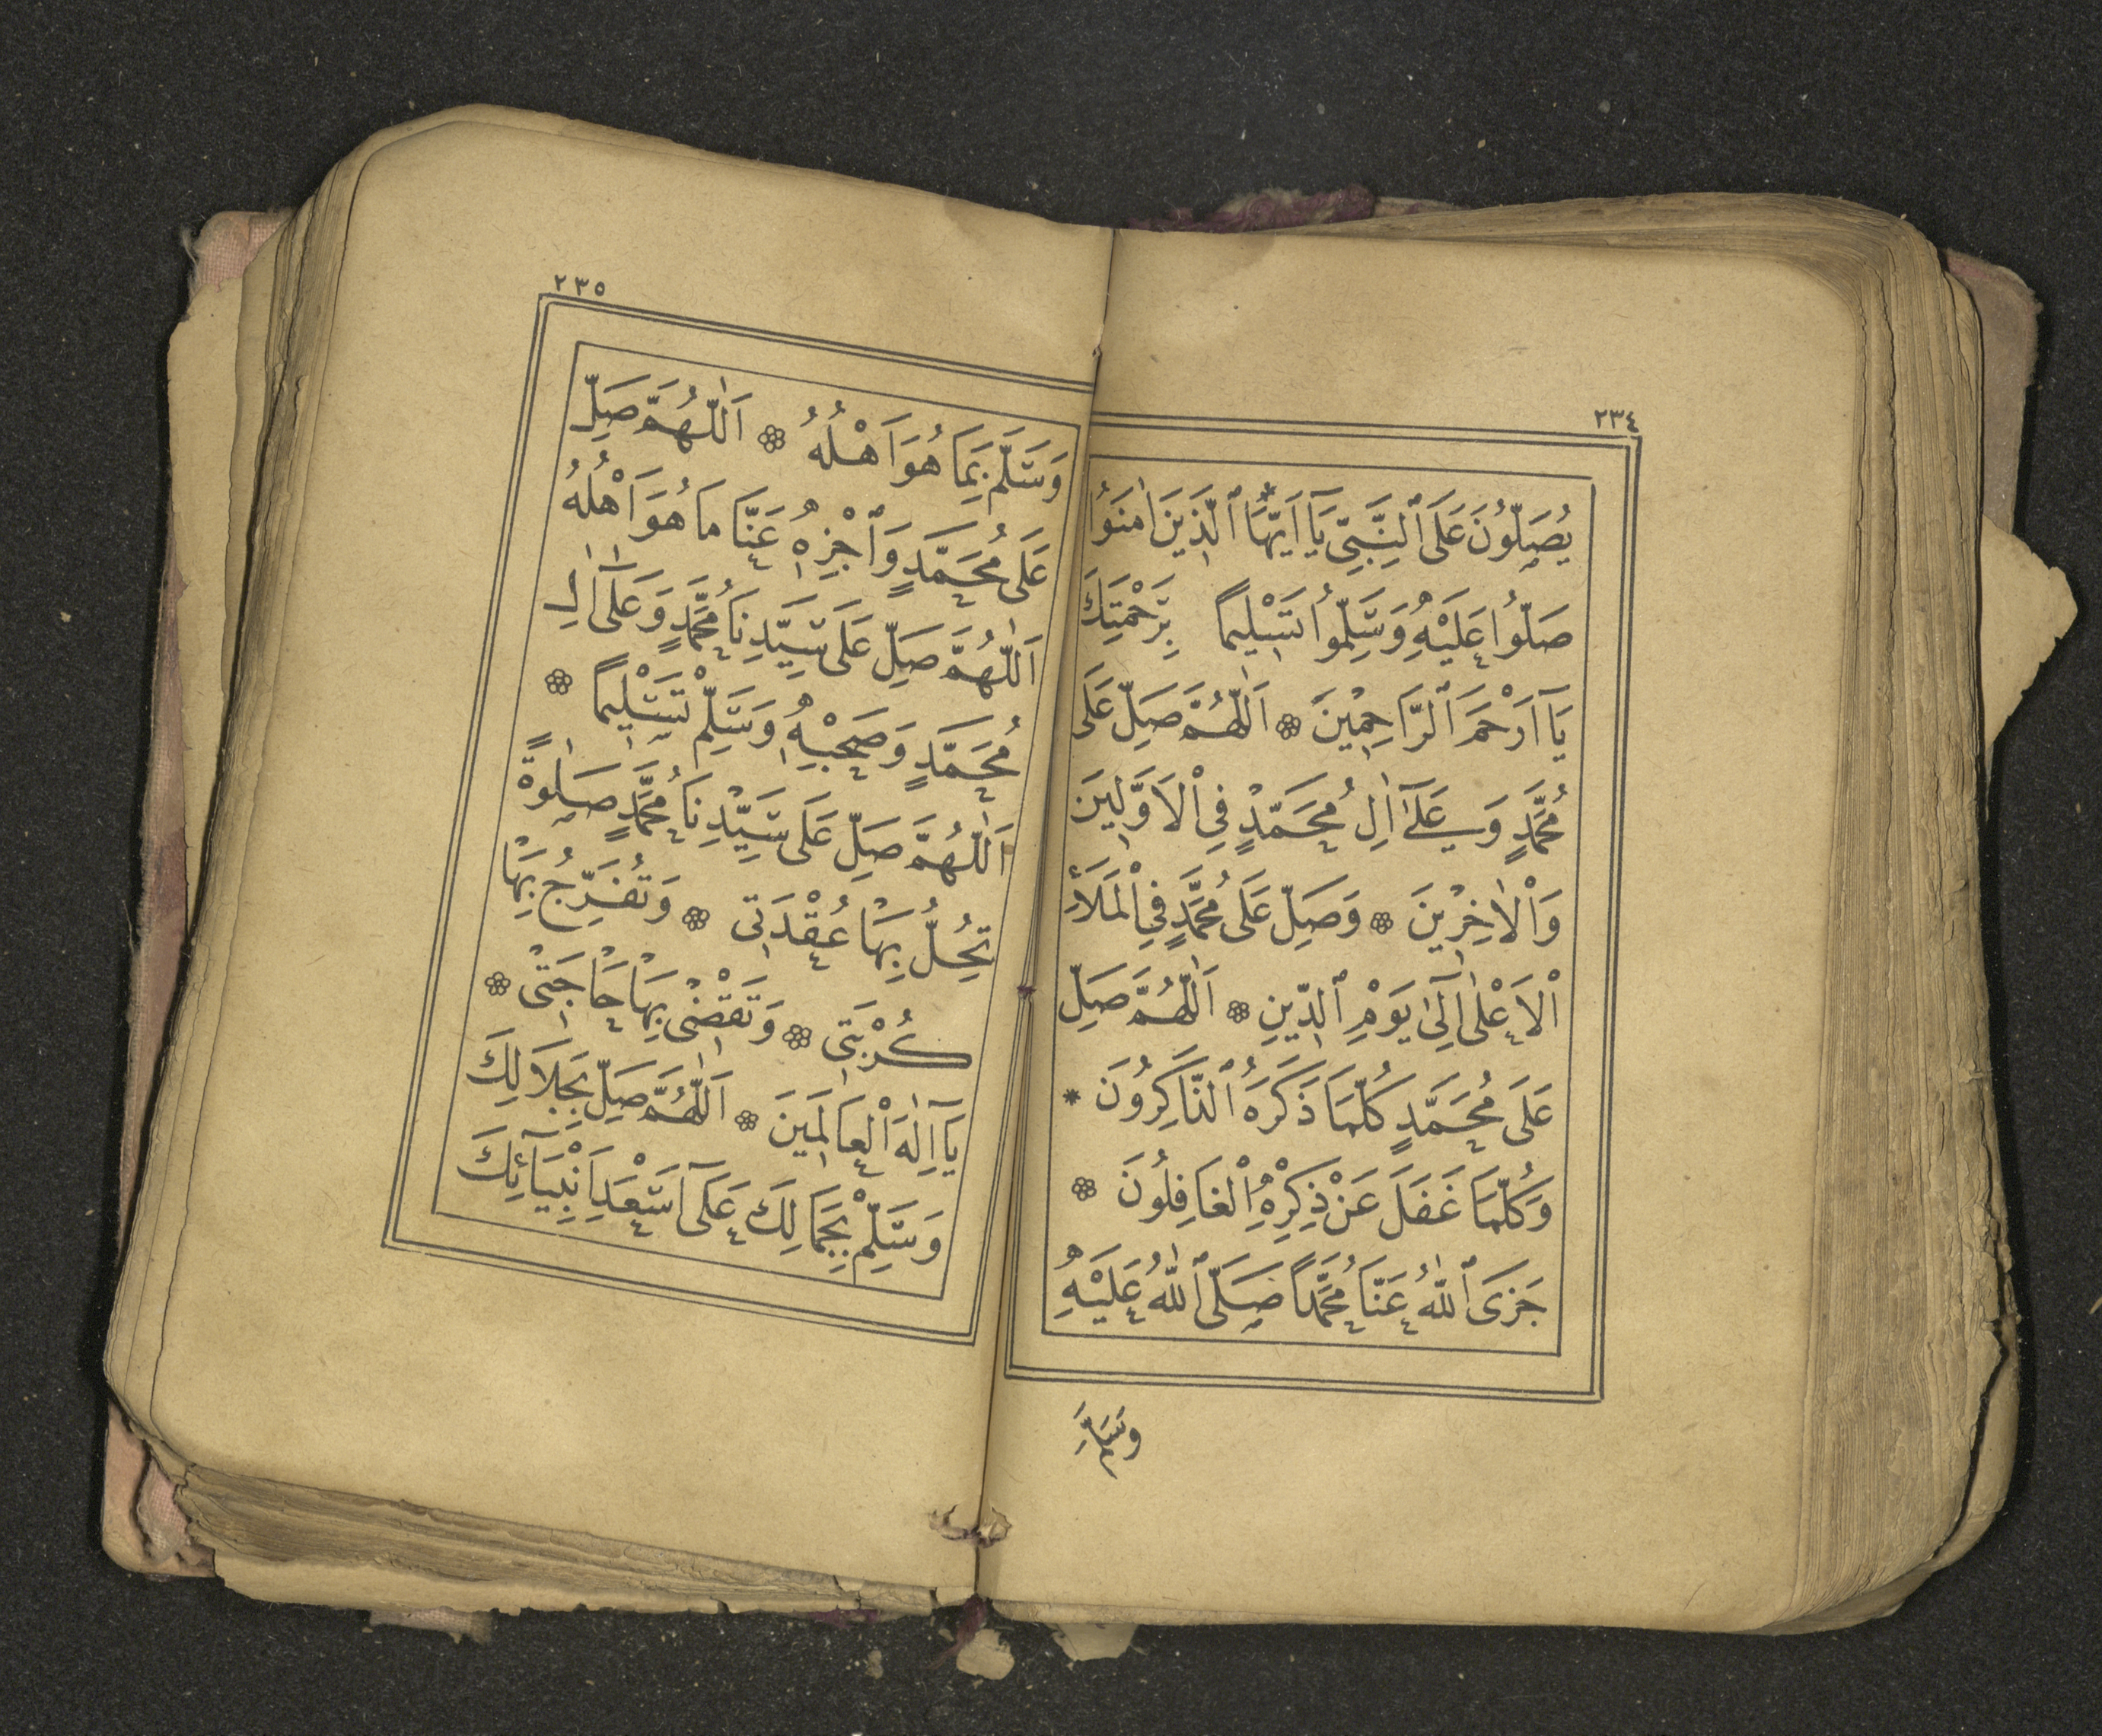 ٢٣٤
يُصَلُّونَ عَلَى ٱلنَّبِىِّ يَٓا اَيُّهَا ٱلَّذِينَ اٰمَنُوا
صَلُّوا عَلَيْهِ وَسَلِّمُوا تَسْلِيمًا بِرَحْمَتِكَ
يَٓا اَرْحَمَ ٱلرَّاحِمِينَ ۞ اَللّٰهُمَّ صَلِّ عَلَى
مُحَمَّدٍ وَ عَلٰٓى اٰلِ مُحَمَّدٍ فِى ٱلْاَوَّلِينَ
وَٱلْاٰخِرِينَ ۞ وَصَلِّ عَلَى مُحَمَّدٍ فِى ٱلْمَلَاِٴ
ٱلْاَعْلٰى اِلٰى يَوْمِ ٱلدِّينِ ۞ اَللّٰهُمَّ صَلِّ
عَلَى مُحَمَّدٍ كُلَّمَا ذَكَرَهُ ٱلذَّاكِرُونَ *
وَكُلَّمَا غَفَلَ عَنْ ذِكْرِهِ ٱلْغَافِلُونَ ۞
جَزَى ٱللّٰهُ عَنَّا مُحَمَّدًا صَلَّى ٱللّٰهُ عَلَيْهِ
وَسَلَّمَ
٢٣٥
وَسَلَّمَ بِمَا هُوَ اَهْلُهُ ۞ اَللّٰهُمَّ صَلِّ
عَلَى مُحَمَّدٍ وَٱجْزِهِ عَنَّا مَا هُوَ اَهْلُهُ
اَللّٰهُمَّ صَلِّ عَلَى سَيِّدِنَا مُحَمَّدٍ وَعَلٰٓى اٰلِ
مُحَمَّدٍ وَصَحْبِهِ وَسَلِّمْ تَسْلِيمًا ۞
اَللّٰهُمَّ صَلِّ عَلَى سَيِّدِنَا مُحَمَّدٍ صَلٰوةً
تَحُلُّ بِهَا عُقْدَتِى ۞ وَتُفَرِّجُ بِهَا
كُرْبَتِى ۞ وَتَقْضِى بِهَا حَاجَتِى ۞
يَٓا اِلٰهَ ٱلْعَالَمِينَ ۞ اَللّٰهُمَّ صَلِّ بِجَلَالِكَ
وَسَلِّمْ بِجَمَالِكَ عَلَٓى اَسْعَدِ اَنْبِيَٓائِكَ